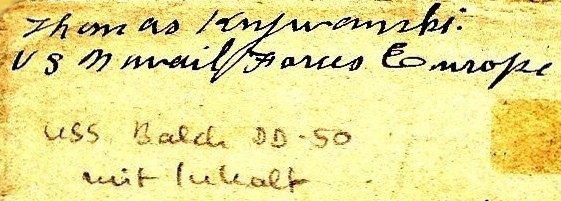 Thomas Kujwanski.
US Navail Forces Europe
USS Balch DD-50
mit Inhalt